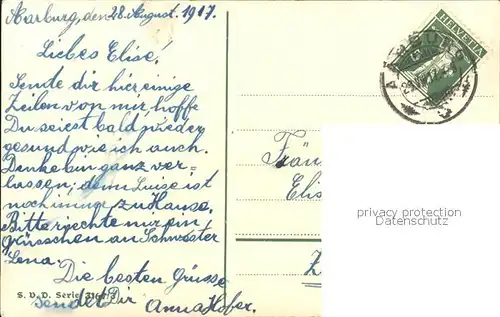 Aarburg, den 28. August. 1917.
Liebes Elise!
Sende dir hier einige
Zeilen von mir hoffe
Du seiest bald wieder
gesund wie ich auch.
Denke bin ganz ver-
lassen; denn Luise ist
noch immer zu Hause.
Bitte richte mir ein
Grüsschen an Schwester
Lena.
Die besten Grüsse
sendet Dir
Anna Hofer.
S. V. D. Serie
HELVETIA
AARBURG
Fräu
Elis
Z
privacy protection
Datenschutz